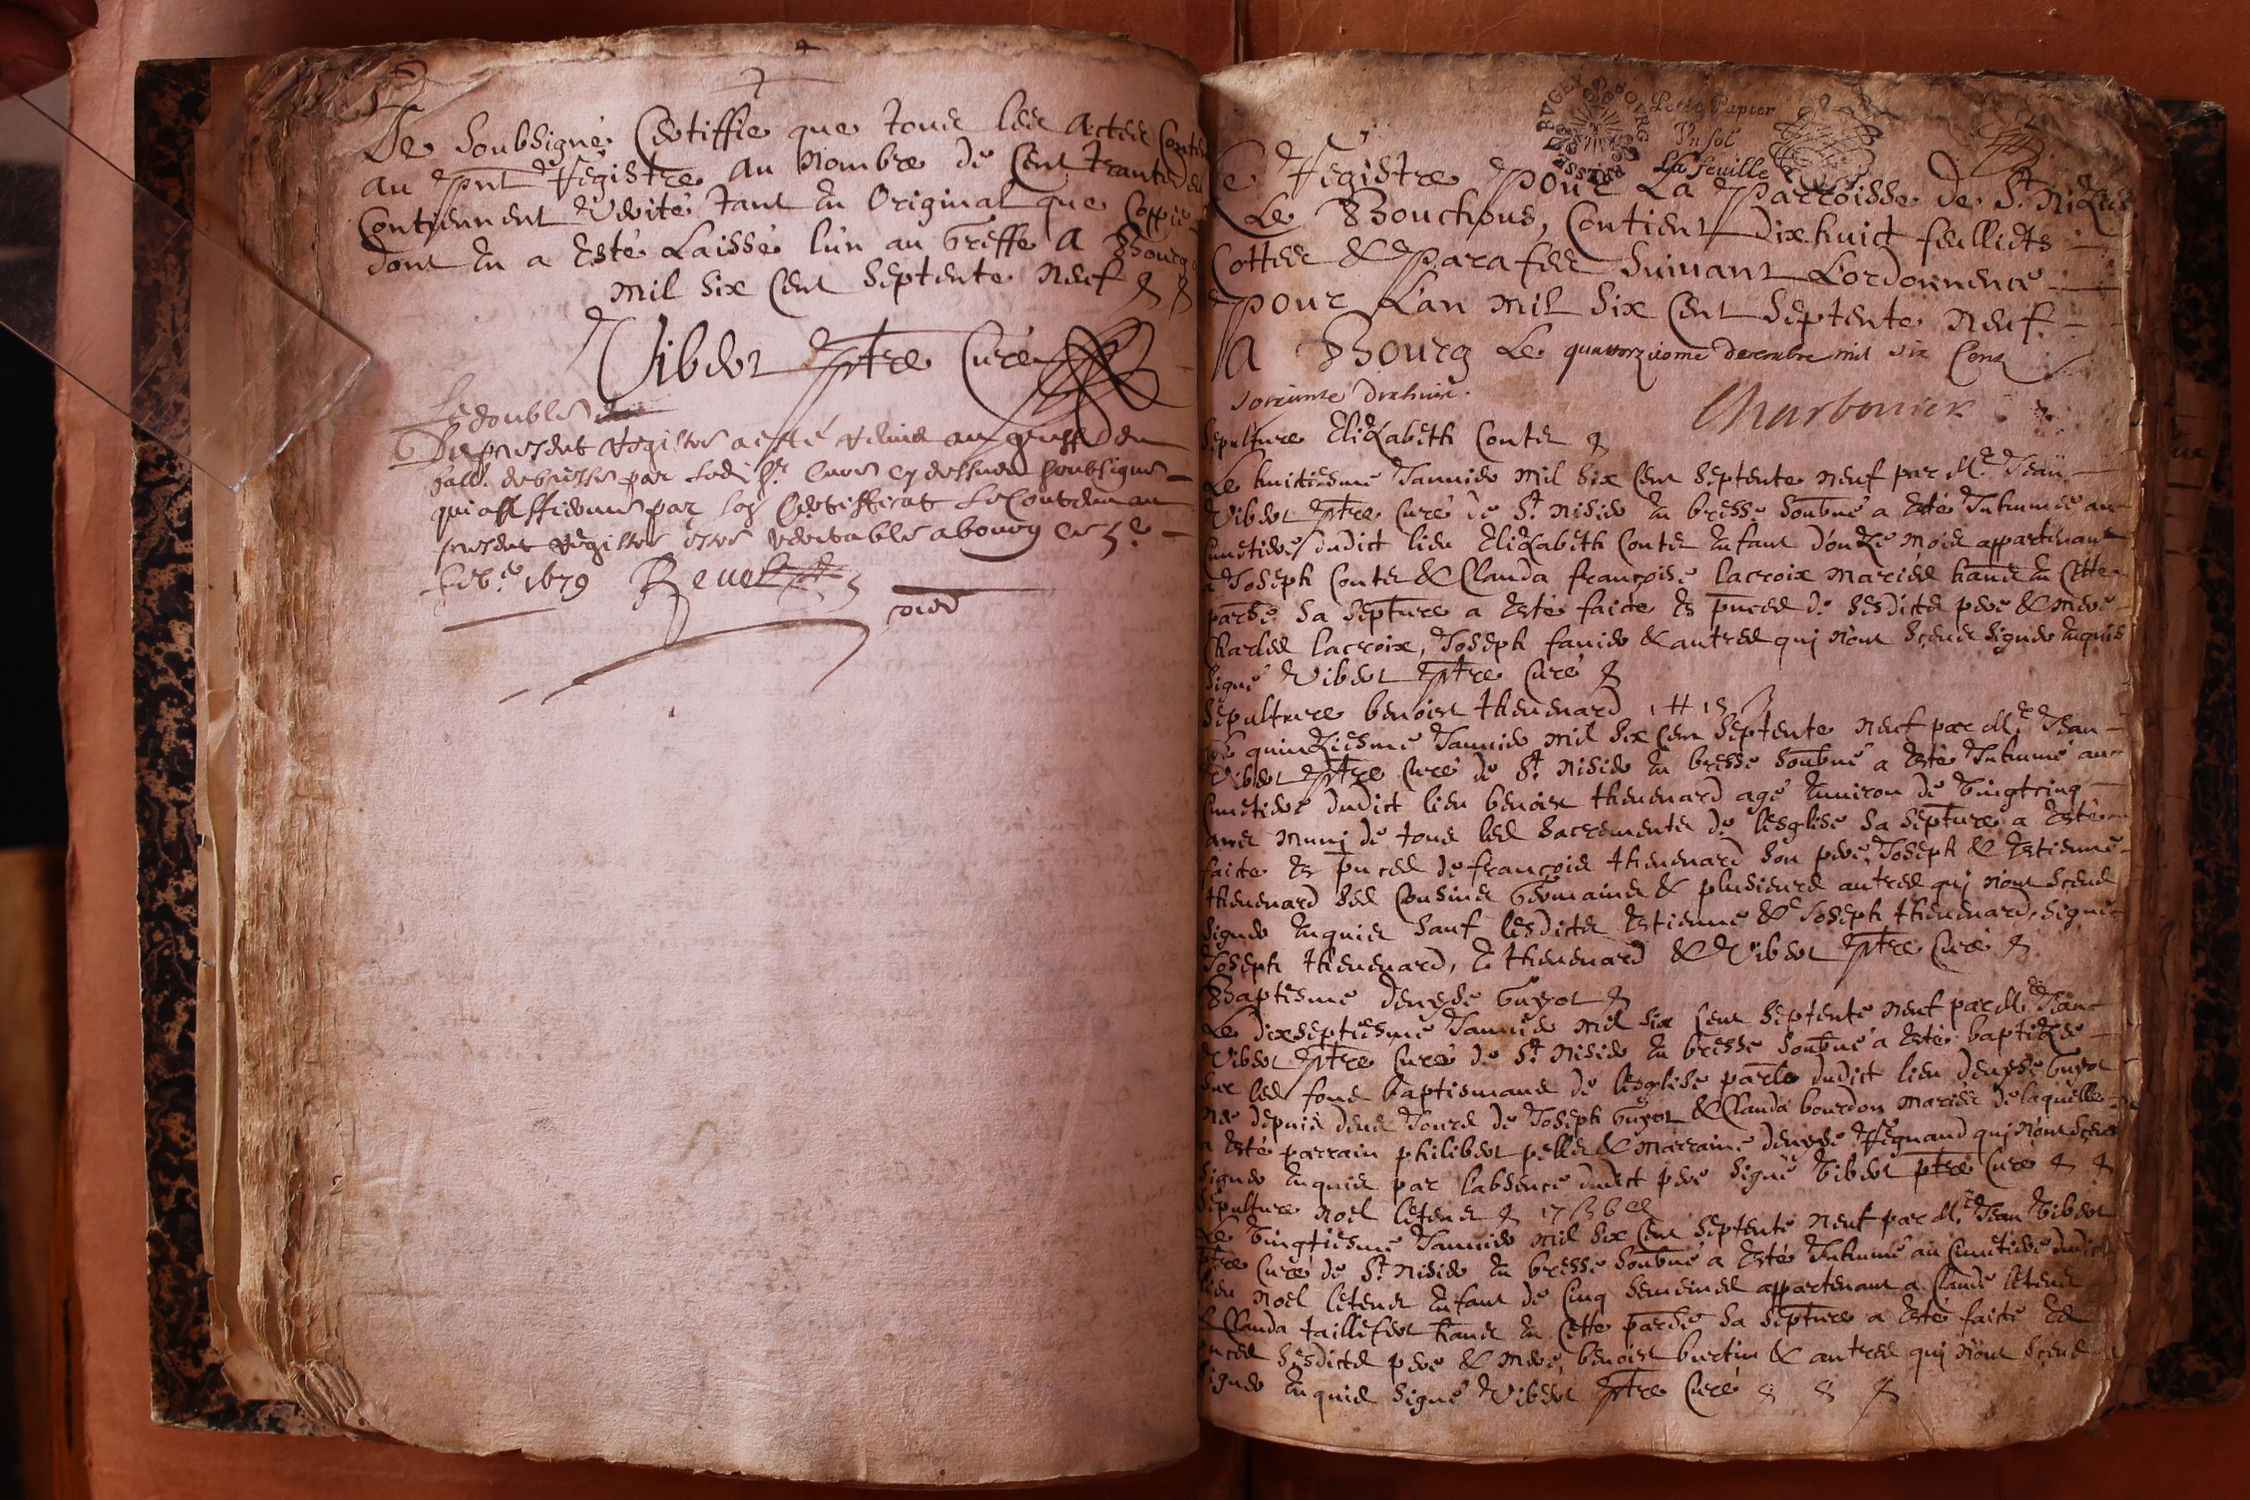 Je soubsigné Certiffie que tous les actes Conten
au pnt Registre au nombre de Cent trante
Contiennent verité tant en Original que Coppie
dont en a esté Laissé lun au Greffe A Bourg
mil six Cent septente neuf
Vibert ptre Curé
Le double
Du present Registre a esté remis au greffe du
par ledit Sr Curé cy dessus soubsigné
qui affidavit par son Certifficat le Contenu au
present Registre estre veritable a bourg ce 5e
1679 Revel
Petit Papier
Un sol
La feuille
BRESSE BUGEY BOURG
Ce Registre pour La Parroisse de St Nizier
Le Bouchoud, Contient Dixhuict feullietz
Cottes & Parafes suivant Lordonnence
pour Lan mil six Cent septente neuf
A Bourg Le quatorzieme decembre mil six Cens
soixante dixhuict.
Charbonier
Sepulture Elizabeth Contet
Le huitiesme Januier mil six Cent septente neuf par Mre Jean
Vibert ptre Curé de St Nisier en bresse soubné a esté Inhumée au
Cimetiere dudict lieu Elizabeth Contet enfant d'onze mois appartenant
a Joseph Contet & Clauda françoise lacroix mariés hants en Cette
parse sa septure a esté faicte es pnces de sesdicts pere & mere
Charles lacroix, Joseph favier & autres qui n'ont sceus signer enquis
signé Vibert ptre Curé
Sepulture benoist thevenard
Le quinziesme Januier mil six Cent septente neuf par Mre Jean
Vibert ptre Curé de St Nisier en bresse soubné a esté Inhumé au
Cimetiere dudict lieu benoist thevenard agé enuiron de vingtcinq
ans muni de tous les sacrements de lesglise sa septure a esté
faicte es pnces de françois thevenard son pere, Joseph & Estienne
thevenard ses Cousins Germains & plusieurs autres qui n'ont sceus
signer enquis sauf lesdicts Estienne & Joseph thevenard, signé
Joseph thevenard, E thevenard & Vibert ptre Curé
Baptesme denyse Guyot
Le dixseptiesme Januier mil six Cent septente neuf par Mre Jean
Vibert ptre Curé de St Nisier en bresse soubné a esté baptizée
sur les fons baptismaus de lesglise parle dudict lieu denyse Guyot
née depuis deus Jours de Joseph Guyot & Clauda bourdon mariés de laquelle
a esté parrain philibert pellet & marraine denyse Regnaud qui n'ont sceus
signer enquis par labsence dudict pere signé Vibert ptre Curé
Sepulture noel
Le vingtiesme Januier mil six Cent septente neuf par Mre Jean Vibert
ptre Curé de St Nisier en bresse soubné a esté Inhumé au Cimetiere dudict
lieu noel enfant de Cinq semeines appartenant a Claude
& Clauda taillefert hants en Cette parse sa septure a esté faicte es
pnces sesdicts pere & mere, benoist burtin & autres qui n'ont sceus
signer enquis signé Vibert ptre Curé